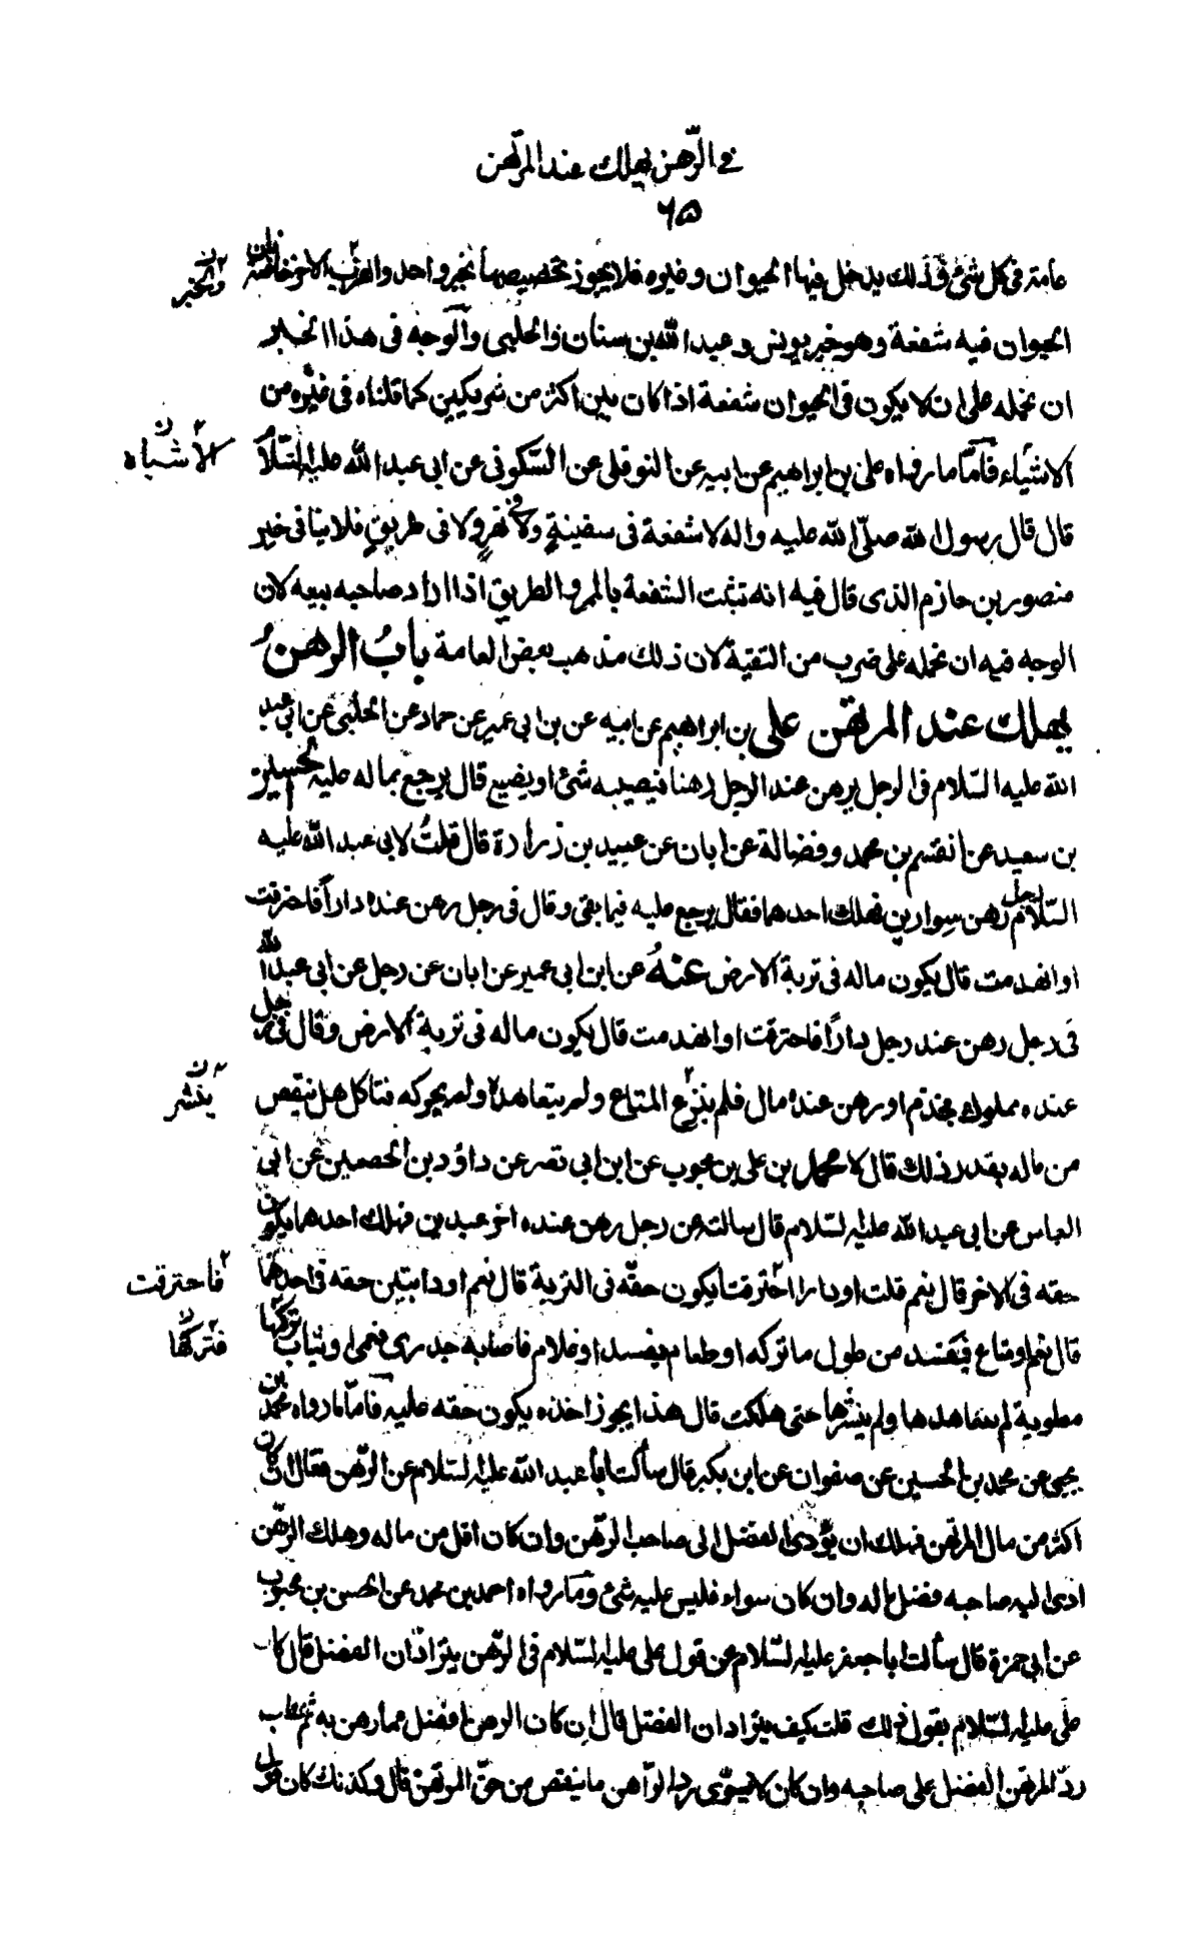 في الرّهن يهلك عند المرتهن
٦٥
عامة في كل شئ وذلك يدخل فيها الحيوان وغيره فلا يجوز تخصيصها بخبر واحد والخبر الاخر خاصة
والخبر
الحيوان فيه شفعة وهو خبر يونس وعبد الله بن سنان والحلبي والوجه في هذا الخبر
ان نحمله على ان لا يكون في الحيوان شفعة اذا كان بين اكثر من شريكين كما قلناه في غيره من
الاشياء فأما ما رواه علي بن ابراهيم عن ابيه عن النوفلي عن السّكوني عن ابي عبد الله عليه السّلام
الأشياه
قال قال رسول الله صلّى الله عليه واله لا شفعة في سفينةٍ ولا في نهرٍ ولا في طريقٍ فلا ينافي خبر
منصور بن حازم الذي قال فيه انه تثبت الشفعة بالممر والطريق اذا اراد صاحبه بيعه لان
الوجه فيه ان نحمله على ضرب من التقية لان ذلك مذهب بعض العامة بابُ الرهنُ
يهلك عند المرتهن علي بن ابراهيم عن ابيه عن بن ابي عمير عن حماد عن الحلبي عن ابي عبد
الله عليه السّلام في الرجل يرهن عند الرجل رهنا فيصيبه شئ او يضيع قال يرجع بماله عليه الحسين
بن سعيد عن القسم بن محمد وفضالة عن ابان عن عبيد بن زرارة قال قلتُ لابي عبد الله عليه
السّلام رجل رهن سوارين فهلك احدهما فقال يرجع عليه فيما بقي وقال في رجل رهن عنده داراً فاحترقت
او انهدمت قال يكون ماله في تربة الارض عنهُ عن ابن ابي عمير عن ابان عن رجل عن ابي عبد الله
في رجل رهن عند رجل داراً فاحترقت او انهدمت قال يكون ماله في تربة الارض وقال في رجل
عنده مملوك يجذم او رهن عنده مال فلم ينزع المتاع ولم يتعاهده ولم يحركه فتاكل هل ينقص
ينشر
من ماله بقدر ذلك قال لا محمد بن علي بن محبوب عن ابن ابي نصر عن داؤد بن الحصين عن ابي
العباس عن ابي عبد الله عليه السّلام قال سالته عن رجل رهن عنده اخر عبدين فهلك احدهما يكون
حقه في الاخر قال نعم قلت او دارا احترقت يكون حقّه في التربة قال نعم او دابتين حقه في احدهما
فأحترقت
قال نعم او متاع فيفسد من طول ما تركه او طعام يفسد او غلام فاصابه جدري فعمي او ثياب تركها
فتركها
مطوية لم يتعاهدها ولم ينشرها حتى هلكت قال هذا يجوز اخذه يكون حقه عليه فأمّا ما رواه محمد بن
يحيى عن محمد بن الحسين عن صفوان عن ابن بكير قال سألت ابا عبد الله عليه السّلام عن الرّهن فقال ان كان
اكثر من مال المرتهن فهلك ان يؤدي الفضل الى صاحب الرّهن وان كان اقل من ماله وهلك الرّهن
ادى اليه صاحبه فضل ماله وان كان سواء فليس عليه شئ وما رواه احمد بن محمد عن الحسن بن محبوب
عن ابي حمزة قال سألت ابا جعفر عليه السّلام عن قول علي عليه السّلام في الرّهن يترادّان الفضل قال كان
علي عليه السّلام يقول ذلك قلت كيف يترادان الفضل قال ان كان الرهن افضل مما رهن به ثم عطب
ردّ المرتهن الفضل على صاحبه وان كان لا يسوى رد الرّاهن ما ينقص من حقّ المرتهن قال وكذلك كان قول